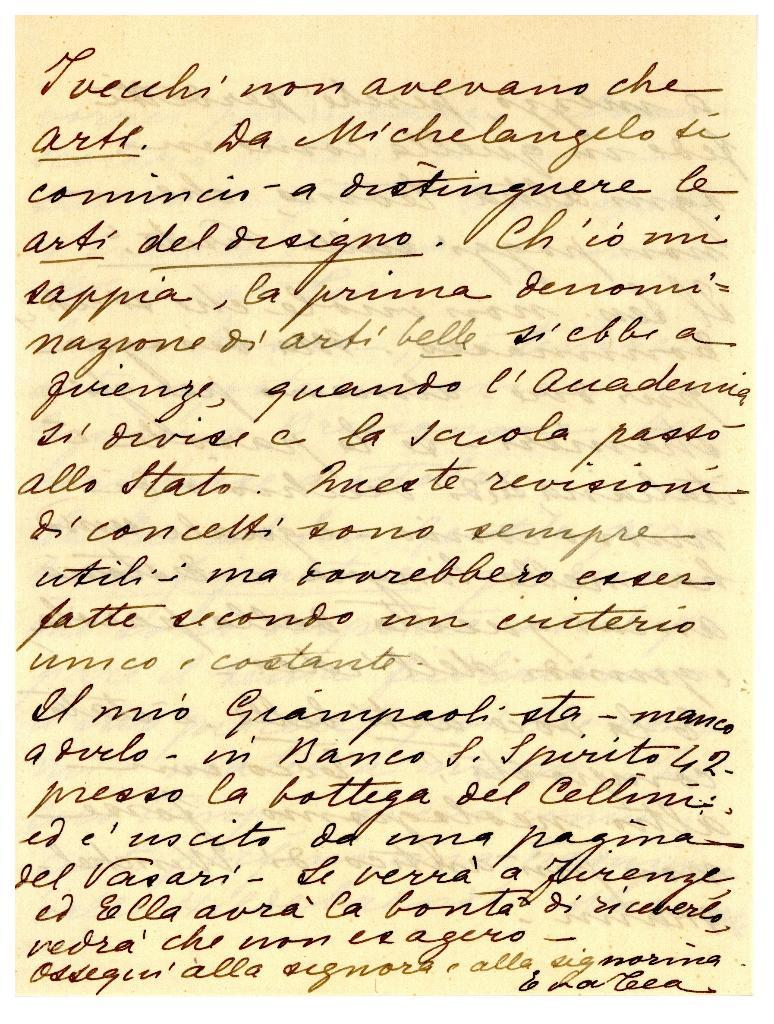 I vecchi non avevano che
arte. Da Michelangelo si
cominciò - a distinguere le
arti del disegno. Ch'io mi
sappia, la prima denomi=
nazione di arti belle si ebbe a
Firenze, quando l'Accademia
si divise e la scuola passò
allo Stato. Queste revisioni
di concetti sono sempre
utili - ma dovrebbero esser
fatte secondo un criterio
unico e costante.
Il mio Giampaoli sta - manco
a dirlo - in Banco S. Spirito 42 -
presso la bottega del Cellini,
ed è uscito da una pagina
del Vasari - Se verrà a Firenze,
ed Ella avrà la bontà di riceverlo,
vedrà che non esagero -
Ossequi alla signora e alla signorina.
Eva Tea